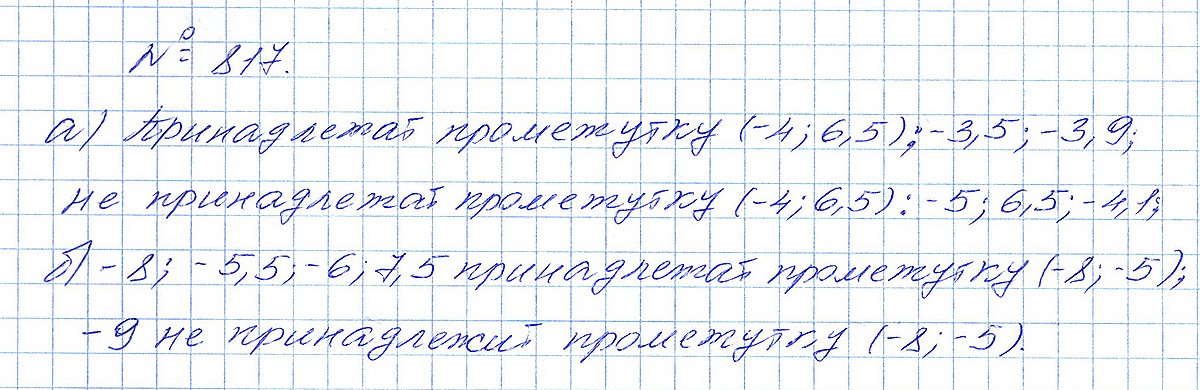 № 817.
а) Принадлежат промежутку (-4; 6,5): -3,5; -3,9;
не принадлежат промежутку (-4; 6,5): -5; 6,5; -4,1;
б) -8; -5,5; -6; 7,5 принадлежат промежутку (-8; -5);
-9 не принадлежит промежутку (-8; -5).